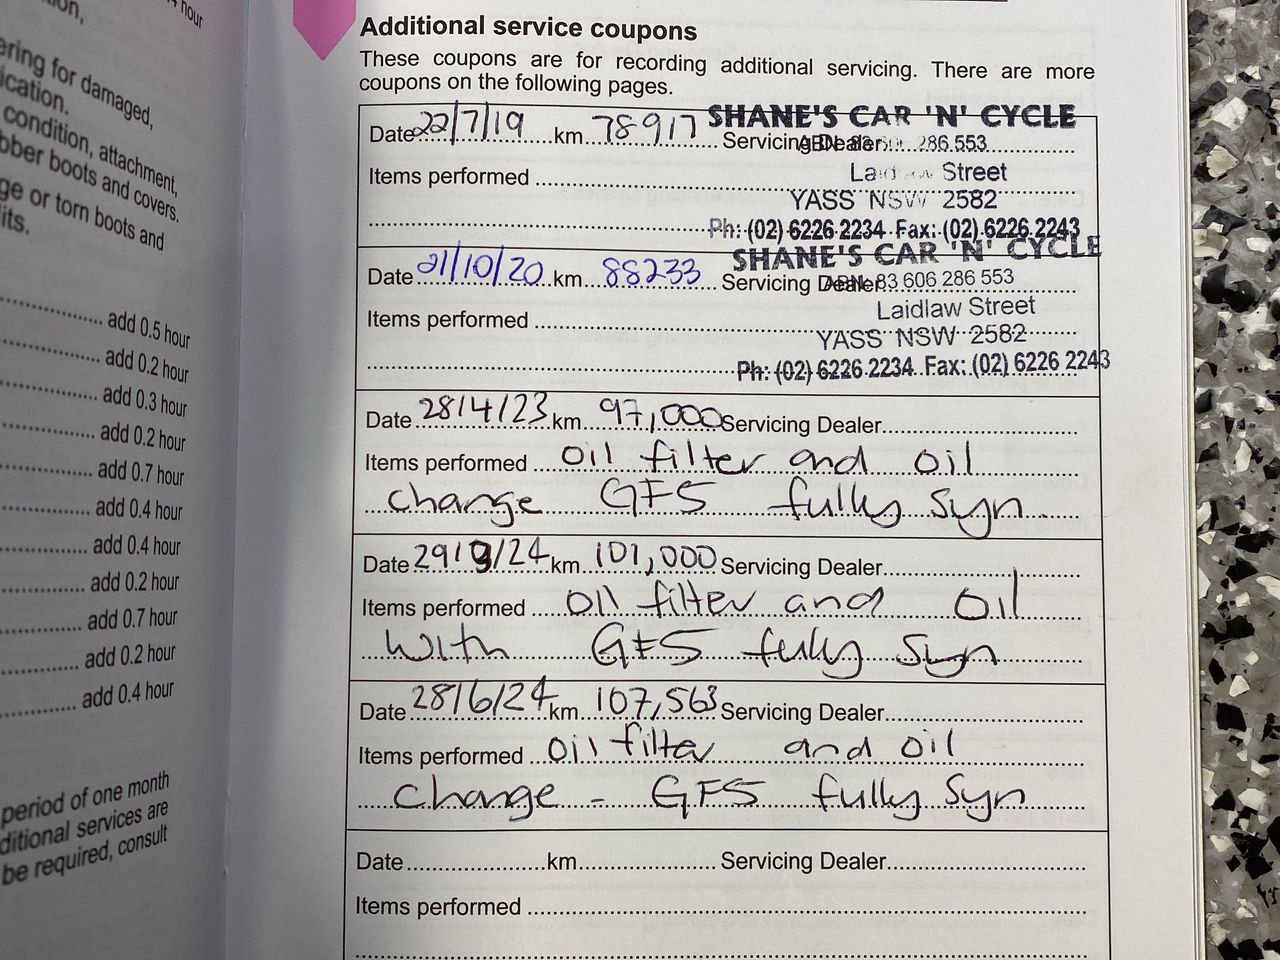 hour
ering for damaged,
ication.
condition, attachment,
bber boots and covers.
ge or torn boots and
its.
add 0.5 hour
add 0.2 hour
add 0.3 hour
add 0.2 hour
add 0.7 hour
add 0.4 hour
add 0.4 hour
add 0.2 hour
add 0.7 hour
add 0.2 hour
add 0.4 hour
period of one month
ditional services are
be required, consult
Additional service coupons
These coupons are for recording additional servicing. There are more
coupons on the following pages.
SHANE'S CAR 'N' CYCLE
Date 22/7/19 km 78917 Servicing Dealer
ABN 286 553
Items performed
Street
YASS NSW 2582
Ph: (02) 6226 2234 Fax: (02) 6226 2243
SHANE'S CAR 'N' CYCLE
Date 21/10/20 km 88233 Servicing Dealer
ABN 83 606 286 553
Laidlaw Street
Items performed
YASS NSW 2582
Ph: (02) 6226 2234 Fax: (02) 6226 2243
Date 28/4/23 km 97,000 Servicing Dealer
Items performed oil filter and oil
change GF5 fully syn
Date 29/9/24 km 101,000 Servicing Dealer
Items performed oil filter and oil
with GF5 fully syn
Date 28/6/24 km 107,563 Servicing Dealer
Items performed oil filter and oil
change - GF5 fully syn
Date km Servicing Dealer
Items performed